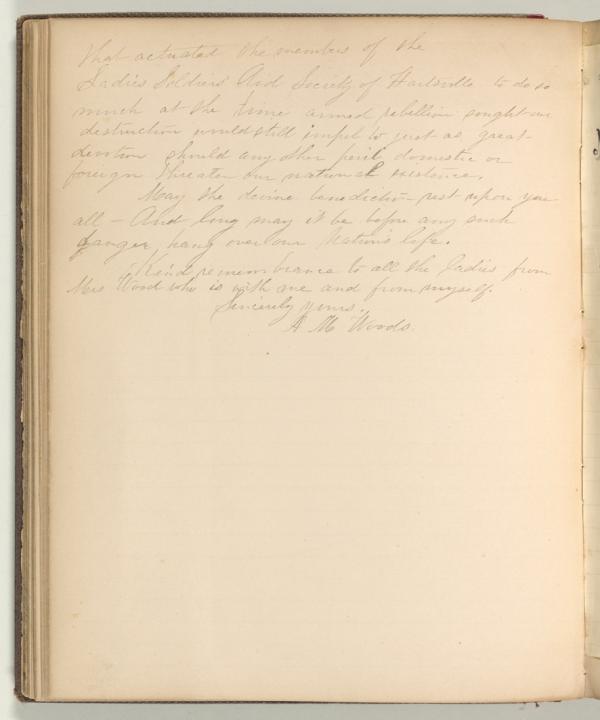 that actuated the members of the
Ladies Soldiers' Aid Society of Hartsville to do so
much at the time armed rebellion sought our
destruction would still impel to just as great
devotion should any other peril domestic or
foreign threaten our national existence.
May the devine benediction rest upon you
all - And long may it be before any such
danger hang over our Nation's life.
Kind remembrance to all the Ladies from
Mrs Wood who is with me and from myself.
Sincerely yours,
A M Woods.